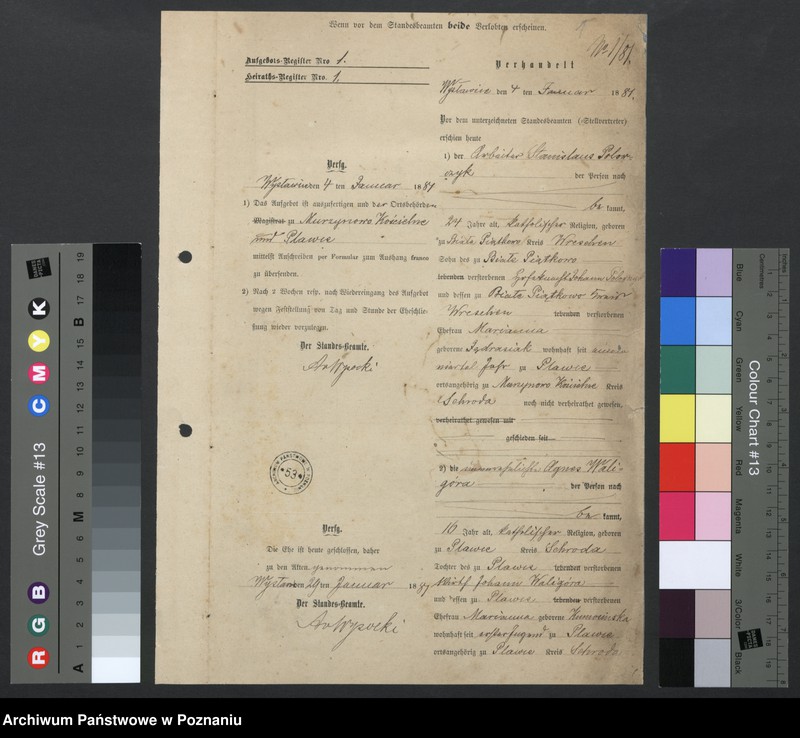 Wenn vor dem Standesbeamten beide Verlobten erscheinen.
No 1/81.
Aufgebots-Register Nro 1.
Heiraths-Register Nro. 1.
Verhandelt
den 4 ten Januar 1881.
Vor dem unterzeichneten Standesbeamten (-Stellvertreter)
erschien heute
1) der Arbeiter Stanislaus
der Person nach
be kannt,
24 Jahre alt, katholischer Religion, geboren
zu Biale Piątkowo Kreis Wreschen
Sohn des zu Biale Piątkowo
lebenden verstorbenen Johann
und dessen zu Biale Piątkowo Kreis
Wreschen lebenden verstorbenen
Ehefrau Marianna
geborene wohnhaft seit
Jahr zu Plawce
ortsangehörig zu Kreis
Schroda noch nicht verheirathet gewesen,
verheirathet gewesen mit
geschieden seit
2) die unverehelichte Agnes Wali-
góra der Person nach
be kannt,
16 Jahr alt, katholischer Religion, geboren
zu Plawce Kreis Schroda
Tochter des zu Plawce lebenden verstorbenen
Wirth Johann Waligóra
und dessen zu Plawce lebenden verstorbenen
Ehefrau Marianna geborene
wohnhaft seit erster Jugend zu Plawce
ortsangehörig zu Plawce Kreis Schroda
Verfg.
den 4 ten Januar 1881
1) Das Aufgebot ist auszufertigen und der Ortsbehörden
Magistrat zu Murzynowo Kościelne
und Plawce
mittelst Anschreiben per Formular zum Aushang franco
zu übersenden.
2) Nach 2 Wochen resp. nach Wiedereingang des Aufgebot
wegen Feststellung von Tag und Stunde der Eheschlie-
ßung wieder vorzulegen.
Der Standes-Beamte.
53
Verfg.
Die Ehe ist heute geschlossen, daher
zu den Akten genommen
den ten Januar 1881
Der Standes-Beamte.
Grey Scale #13
R G B C M Y K
A 1 2 3 4 5 6 M 8 9 10 11 12 13 14 15 B 17 18 19
Colour Chart #13
Blue
Cyan
Green
Yellow
Red
Magenta
White
3/Color
Black
Centimetres
Inches
Archiwum Państwowe w Poznaniu